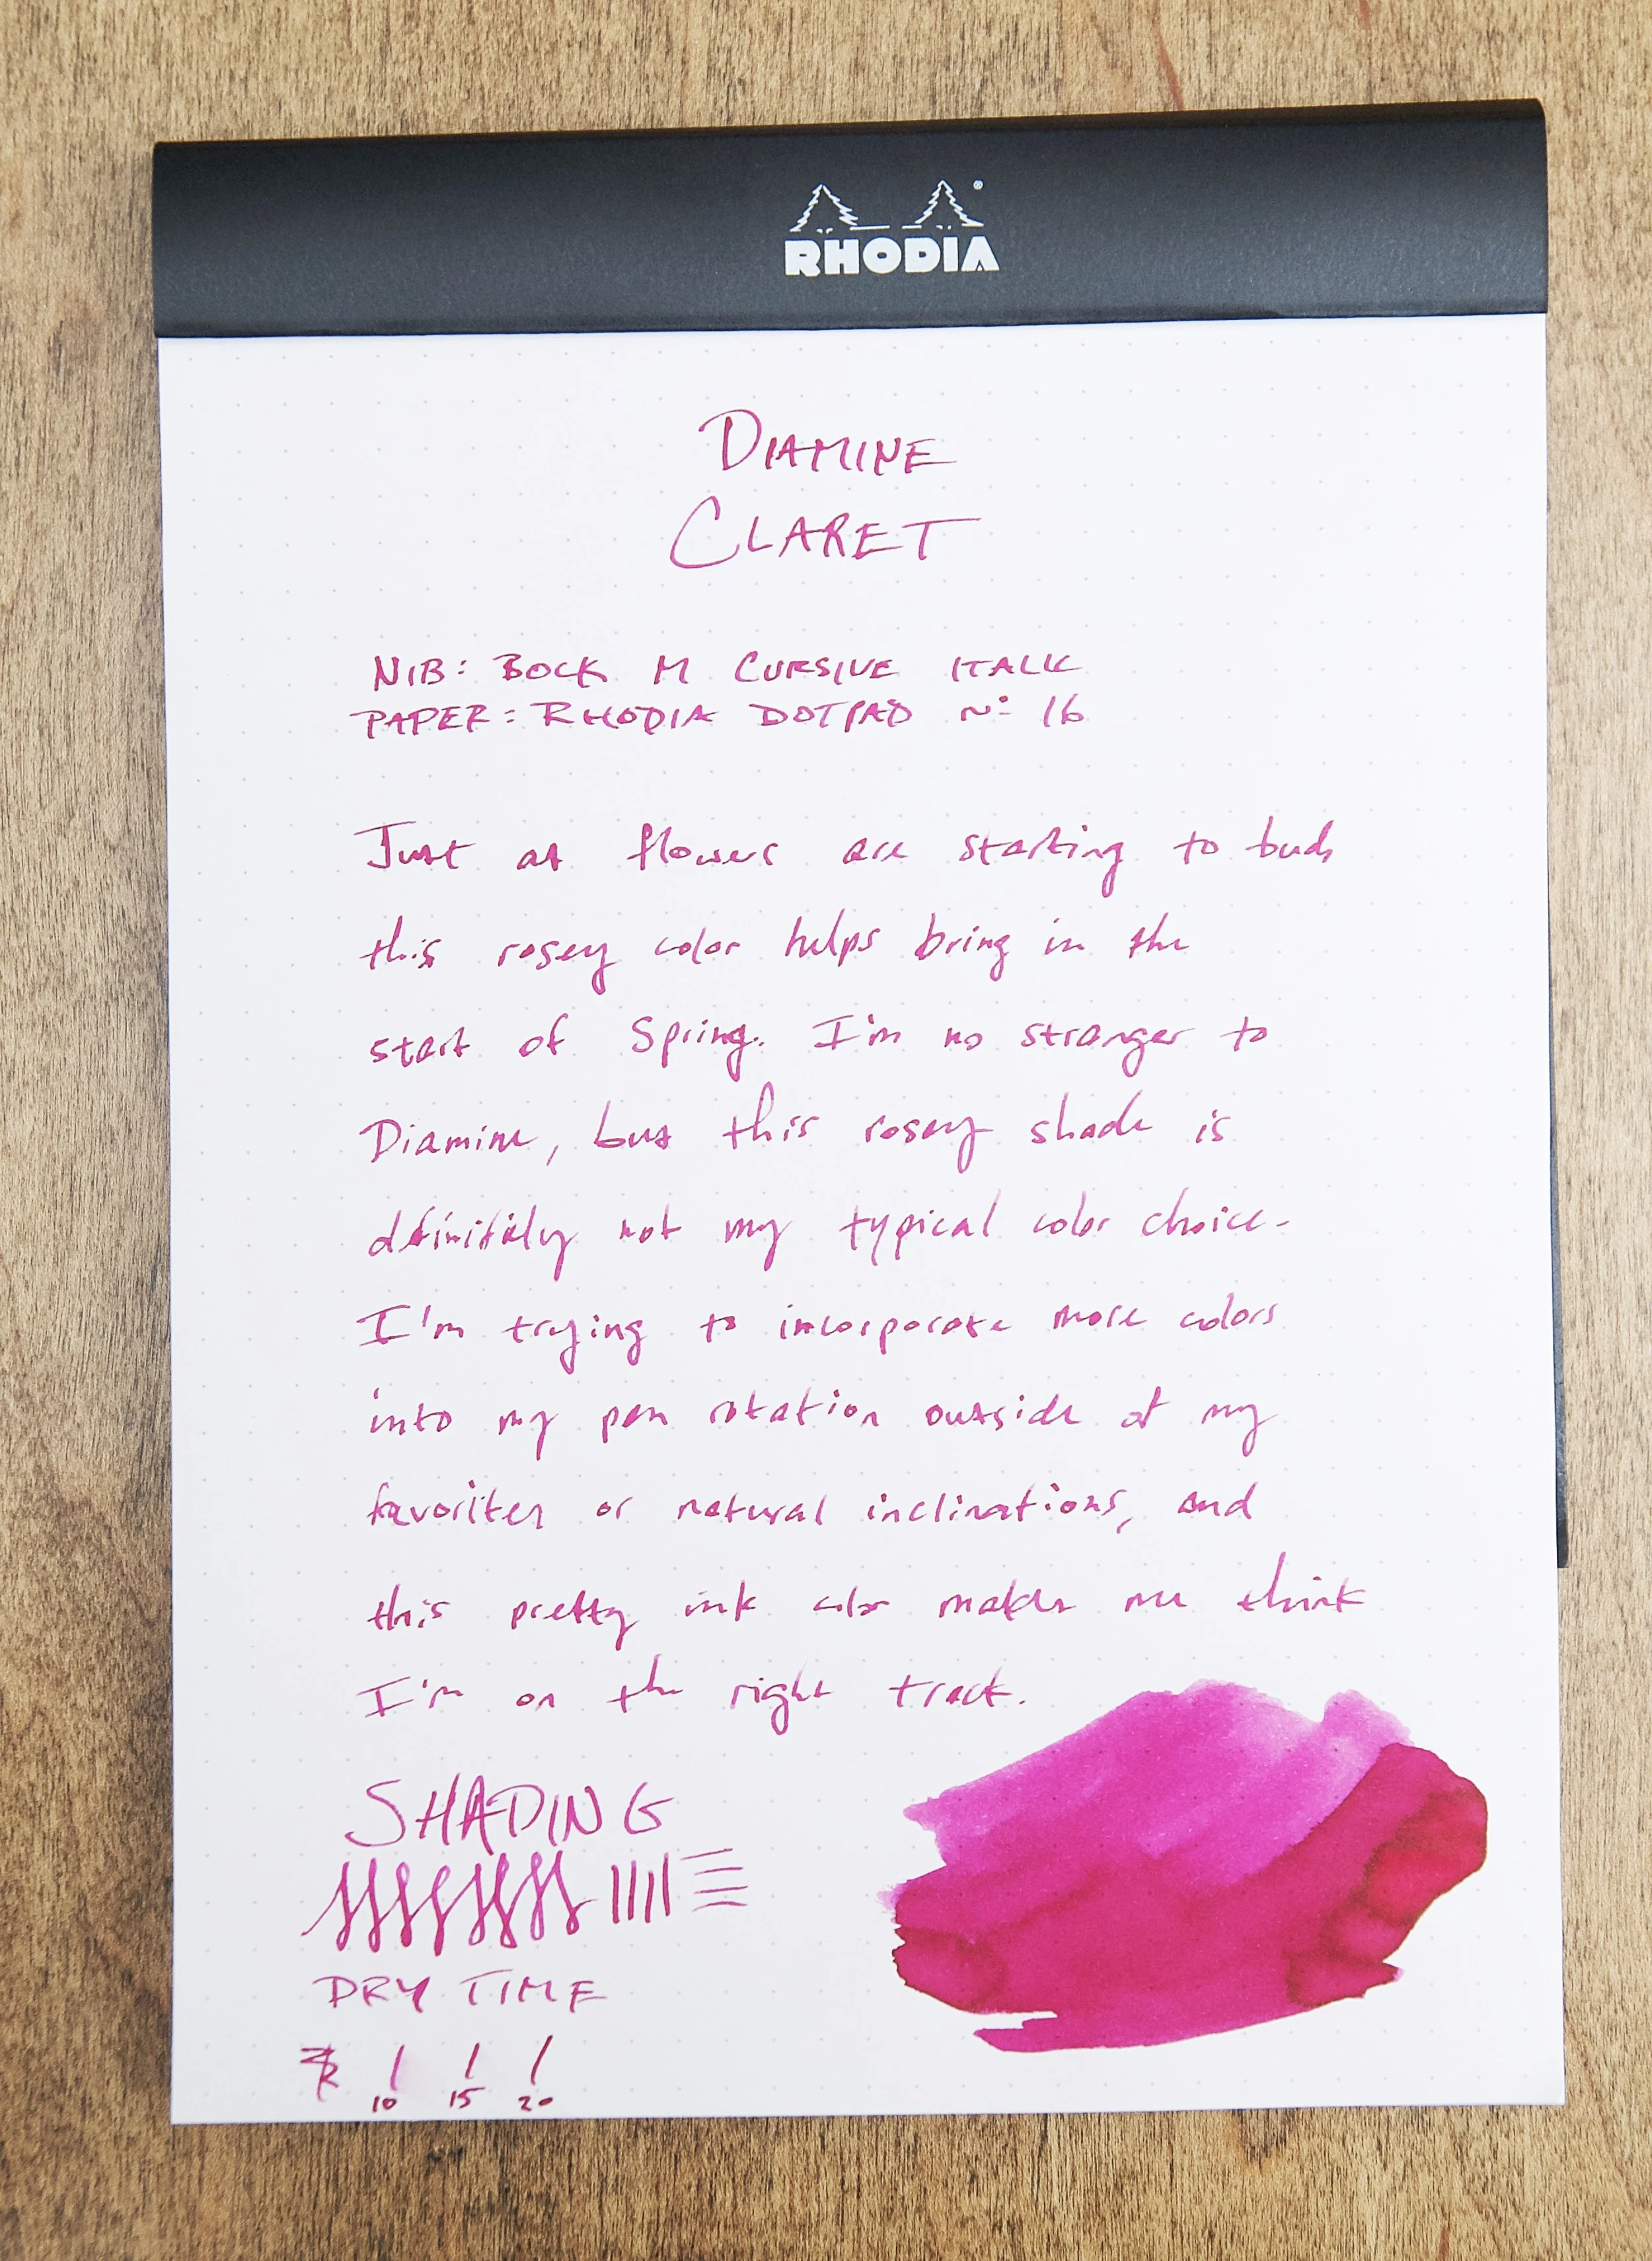 RHODIA
DIAMINE
CLARET
NIB: BOCK M CURSIVE ITALIC
PAPER: RHODIA DOTPAD No 16
Just as flowers are starting to bud,
this rosey color helps bring in the
start of Spring. I'm no stranger to
Diamine, but this rosey shade is
definitely not my typical color choice.
I'm trying to incorporate more colors
into my pen rotation outside of my
favorites or natural inclinations, and
this pretty ink color makes me think
I'm on the right track.
SHADING
DRY TIME
10 15 20